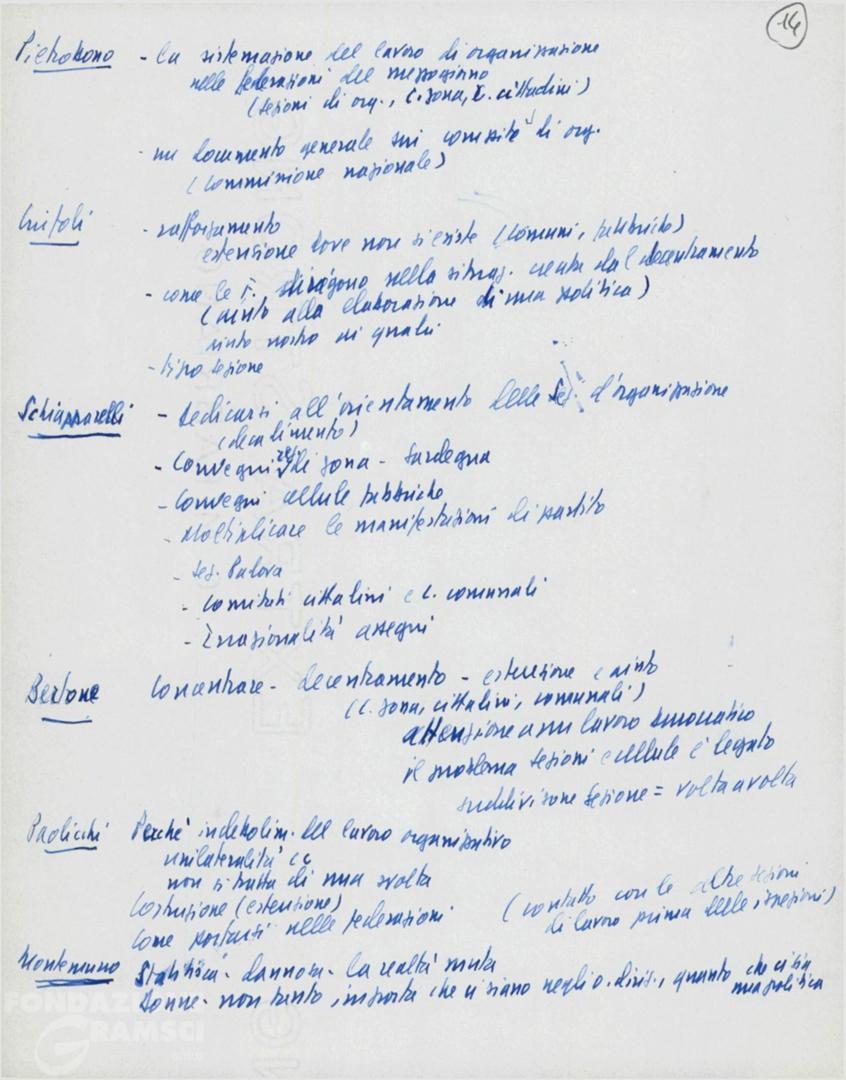 14
Pietrobono - la sistemazione del lavoro di organizzazione
nelle federazioni del mezzogiorno
(sezioni di org., C. zona, C. cittadini)
- un documento generale sui comitati di org.
(Commissione nazionale)
- rafforzamento
estensione dove non si esiste (Comuni, fabbriche)
- come le F. si dirigono nella situaz. creata dal decentramento
(aiuto alla elaborazione di una politica)
aiuto nostro ai quali
- tipo sezione
Schiapparelli - dedicarsi all'orientamento delle Sez. d'organizzazione
- Convegni di zona - Sardegna
- Convegni cellule fabbriche
- Moltiplicare le manifestazioni di partito
- Sez. Padova
- Comitati cittadini e C. comunali
- Irrazionalità assegni
Bertone Concentrare - decentramento - estensione e aiuto
(C. zona, cittadini, comunali)
attenzione a un lavoro democratico
il problema sezioni e cellule è legato
suddivisone sezione = volta a volta
Paolicchi Perché indebolim. del lavoro organizzativo
unilateralità
non si tratta di una svolta
Costruzione (estensione)
Come portarsi nelle federazioni (contatto con le altre sezioni
di lavoro prima delle ispezioni)
Statistica - dannosa - la realtà muta
Donne - non tanto importa che ci siano negli o. diriz., quanto che ci sia
una politica
FONDAZIONE
GRAMSCI